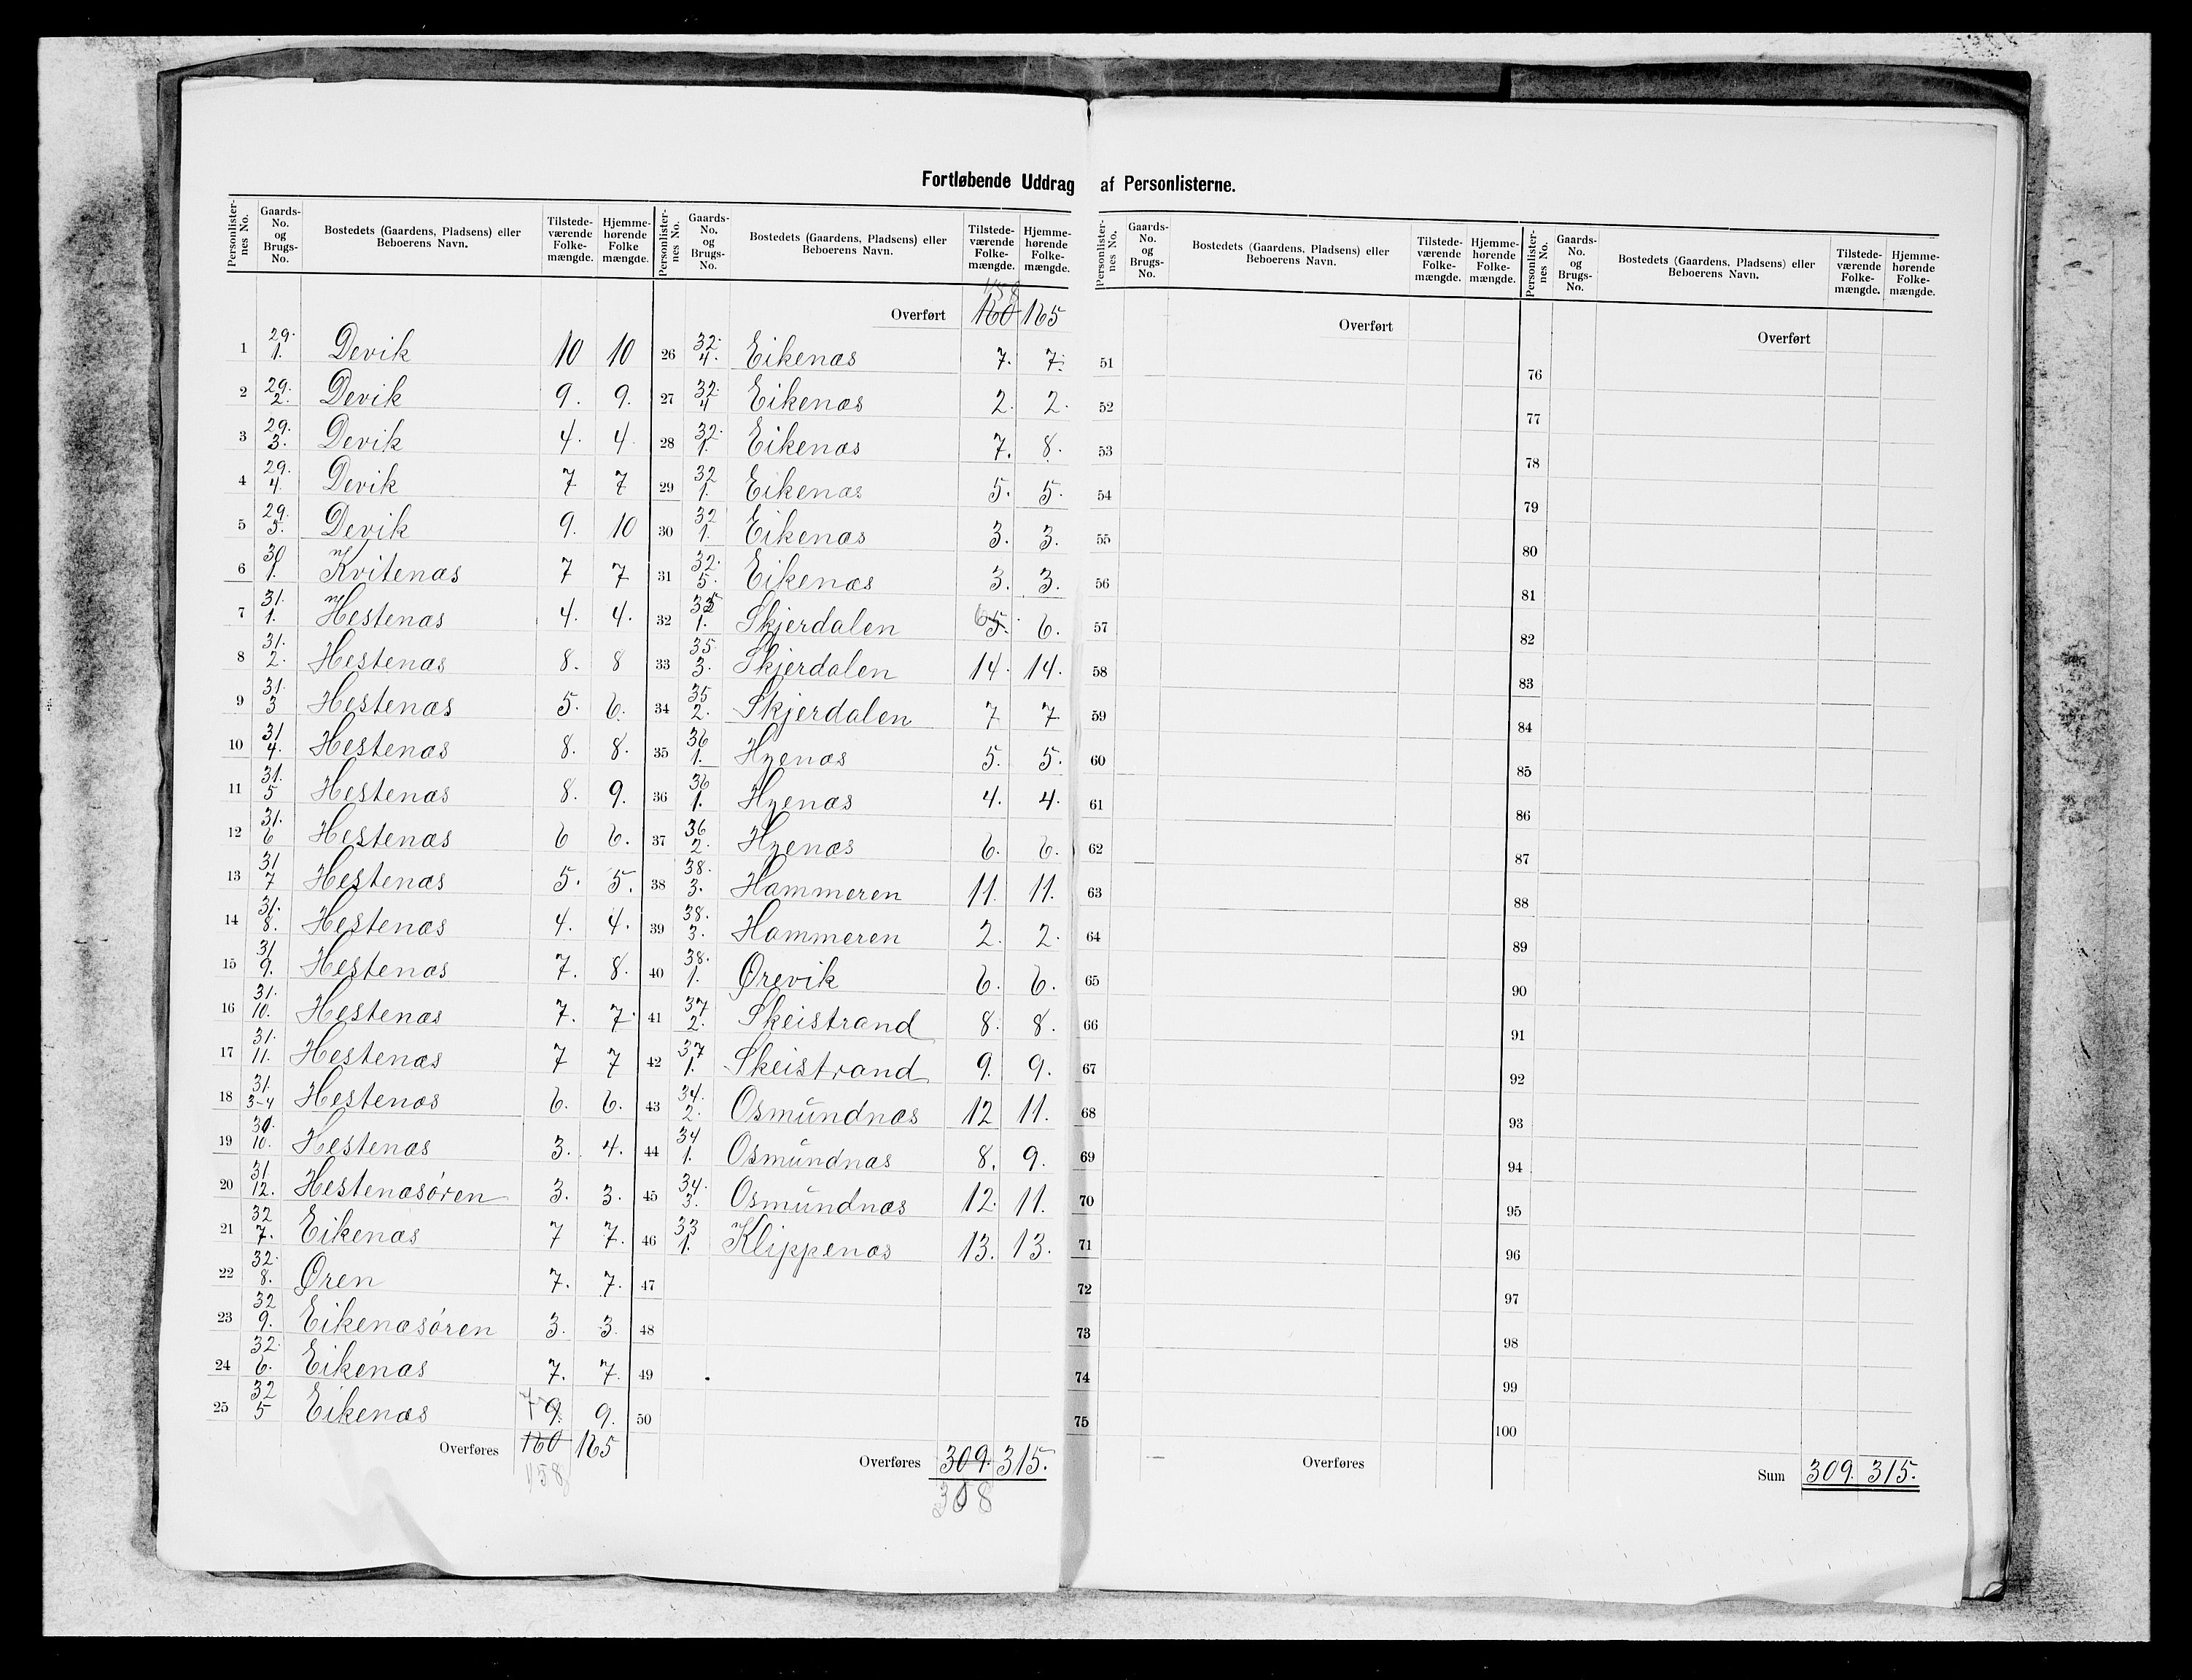 Fortløbende Uddrag af Personlisterne.
Personlisternes No. | Gaards-No. og Brugs-No. | Bostedets (Gaardens, Pladsens) eller Beboerens Navn. | Tilstedeværende Folkemængde. | Hjemmehørende Folkemængde.
1 | 29. 1. | Devik | 10 | 10
2 | 29. 2. | Devik | 9. | 9.
3 | 29. 3. | Devik | 4. | 4.
4 | 29. 4. | Devik | 7 | 7
5 | 29. 5. | Devik | 9. | 10
6 | 30 1. | Kvitenæs | 7 | 7
7 | 31. 1. | Hestenæs | 4. | 4.
8 | 31. 2. | Hestenæs | 8. | 8
9 | 31. 3 | Hestenæs | 5. | 6.
10 | 31 4. | Hestenæs | 8. | 8.
11 | 31. 5 | Hestenæs | 8. | 9.
12 | 31. 6 | Hestenæs | 6 | 6.
13 | 31 7 | Hestenæs | 5. | 5.
14 | 31. 8. | Hestenæs | 4. | 4.
15 | 31 9. | Hestenæs | 7. | 8.
16 | 31. 10. | Hestenæs | 7. | 7.
17 | 31. 11. | Hestenæs | 7 | 7
18 | 31. 3-4 | Hestenæs | 6. | 6.
19 | 31. 10. | Hestenæs | 3. | 4.
20 | 31 12. | Hestenæsøren | 3. | 3.
21 | 32 7. | Eikenæs | 7 | 7.
22 | 32. 8. | Øren | 7. | 7.
23 | 32 9. | Eikenæsøren | 3. | 3.
24 | 32. 6. | Eikenæs | 7. | 7.
25 | 32 5 | Eikenæs | 7 9. | 9.
Overføres | 160 | 165
158
158
Overført | 160 | 165
26 | 32. 4. | Eikenæs | 7. | 7.
27 | 32. 4 | Eikenæs | 2. | 2.
28 | 32. 1. | Eikenæs | 7. | 8.
29 | 32 1. | Eikenæs | 5. | 5.
30 | 32 1. | Eikenæs | 3. | 3.
31 | 32. 5. | Eikenæs | 3. | 3.
32 | 35 1. | Skjerdalen | 6 5. | 6.
33 | 35. 3. | Skjerdalen | 14. | 14.
34 | 35 2. | Skjerdalen | 7 | 7
35 | 36 1. | Hyenæs | 5. | 5.
36 | 36 1. | Hyenæs | 4. | 4.
37 | 36 2. | Hyenæs | 6. | 6.
38 | 38. 3. | Hammeren | 11. | 11.
39 | 38. 3. | Hammeren | 2. | 2.
40 | 38. 1. | Ørevik | 6. | 6.
41 | 37 2. | Skeistrand | 8. | 8.
42 | 37 1. | Skeistrand | 9. | 9.
43 | 34. 2. | Osmundnæs | 12 | 11.
44 | 34 1. | Osmundnæs | 8. | 9.
45 | 34. 3. | Osmundnæs | 12. | 11.
46 | 33 1. | Klippenæs | 13. | 13.
47
48
49
50
Overføres | 309. | 315.
308
Personlisternes No. | Gaards-No. og Brugs-No. | Bostedets (Gaardens, Pladsens) eller Beboerens Navn. | Tilstedeværende Folkemængde. | Hjemmehørende Folkemængde.
Overført
51
52
53
54
55
56
57
58
59
60
61
62
63
64
65
66
67
68
69
70
71
72
73
74
75
Overføres
Overført
76
77
78
79
80
81
82
83
84
85
86
87
88
89
90
91
92
93
94
95
96
97
98
99
100
Sum | 309. | 315.